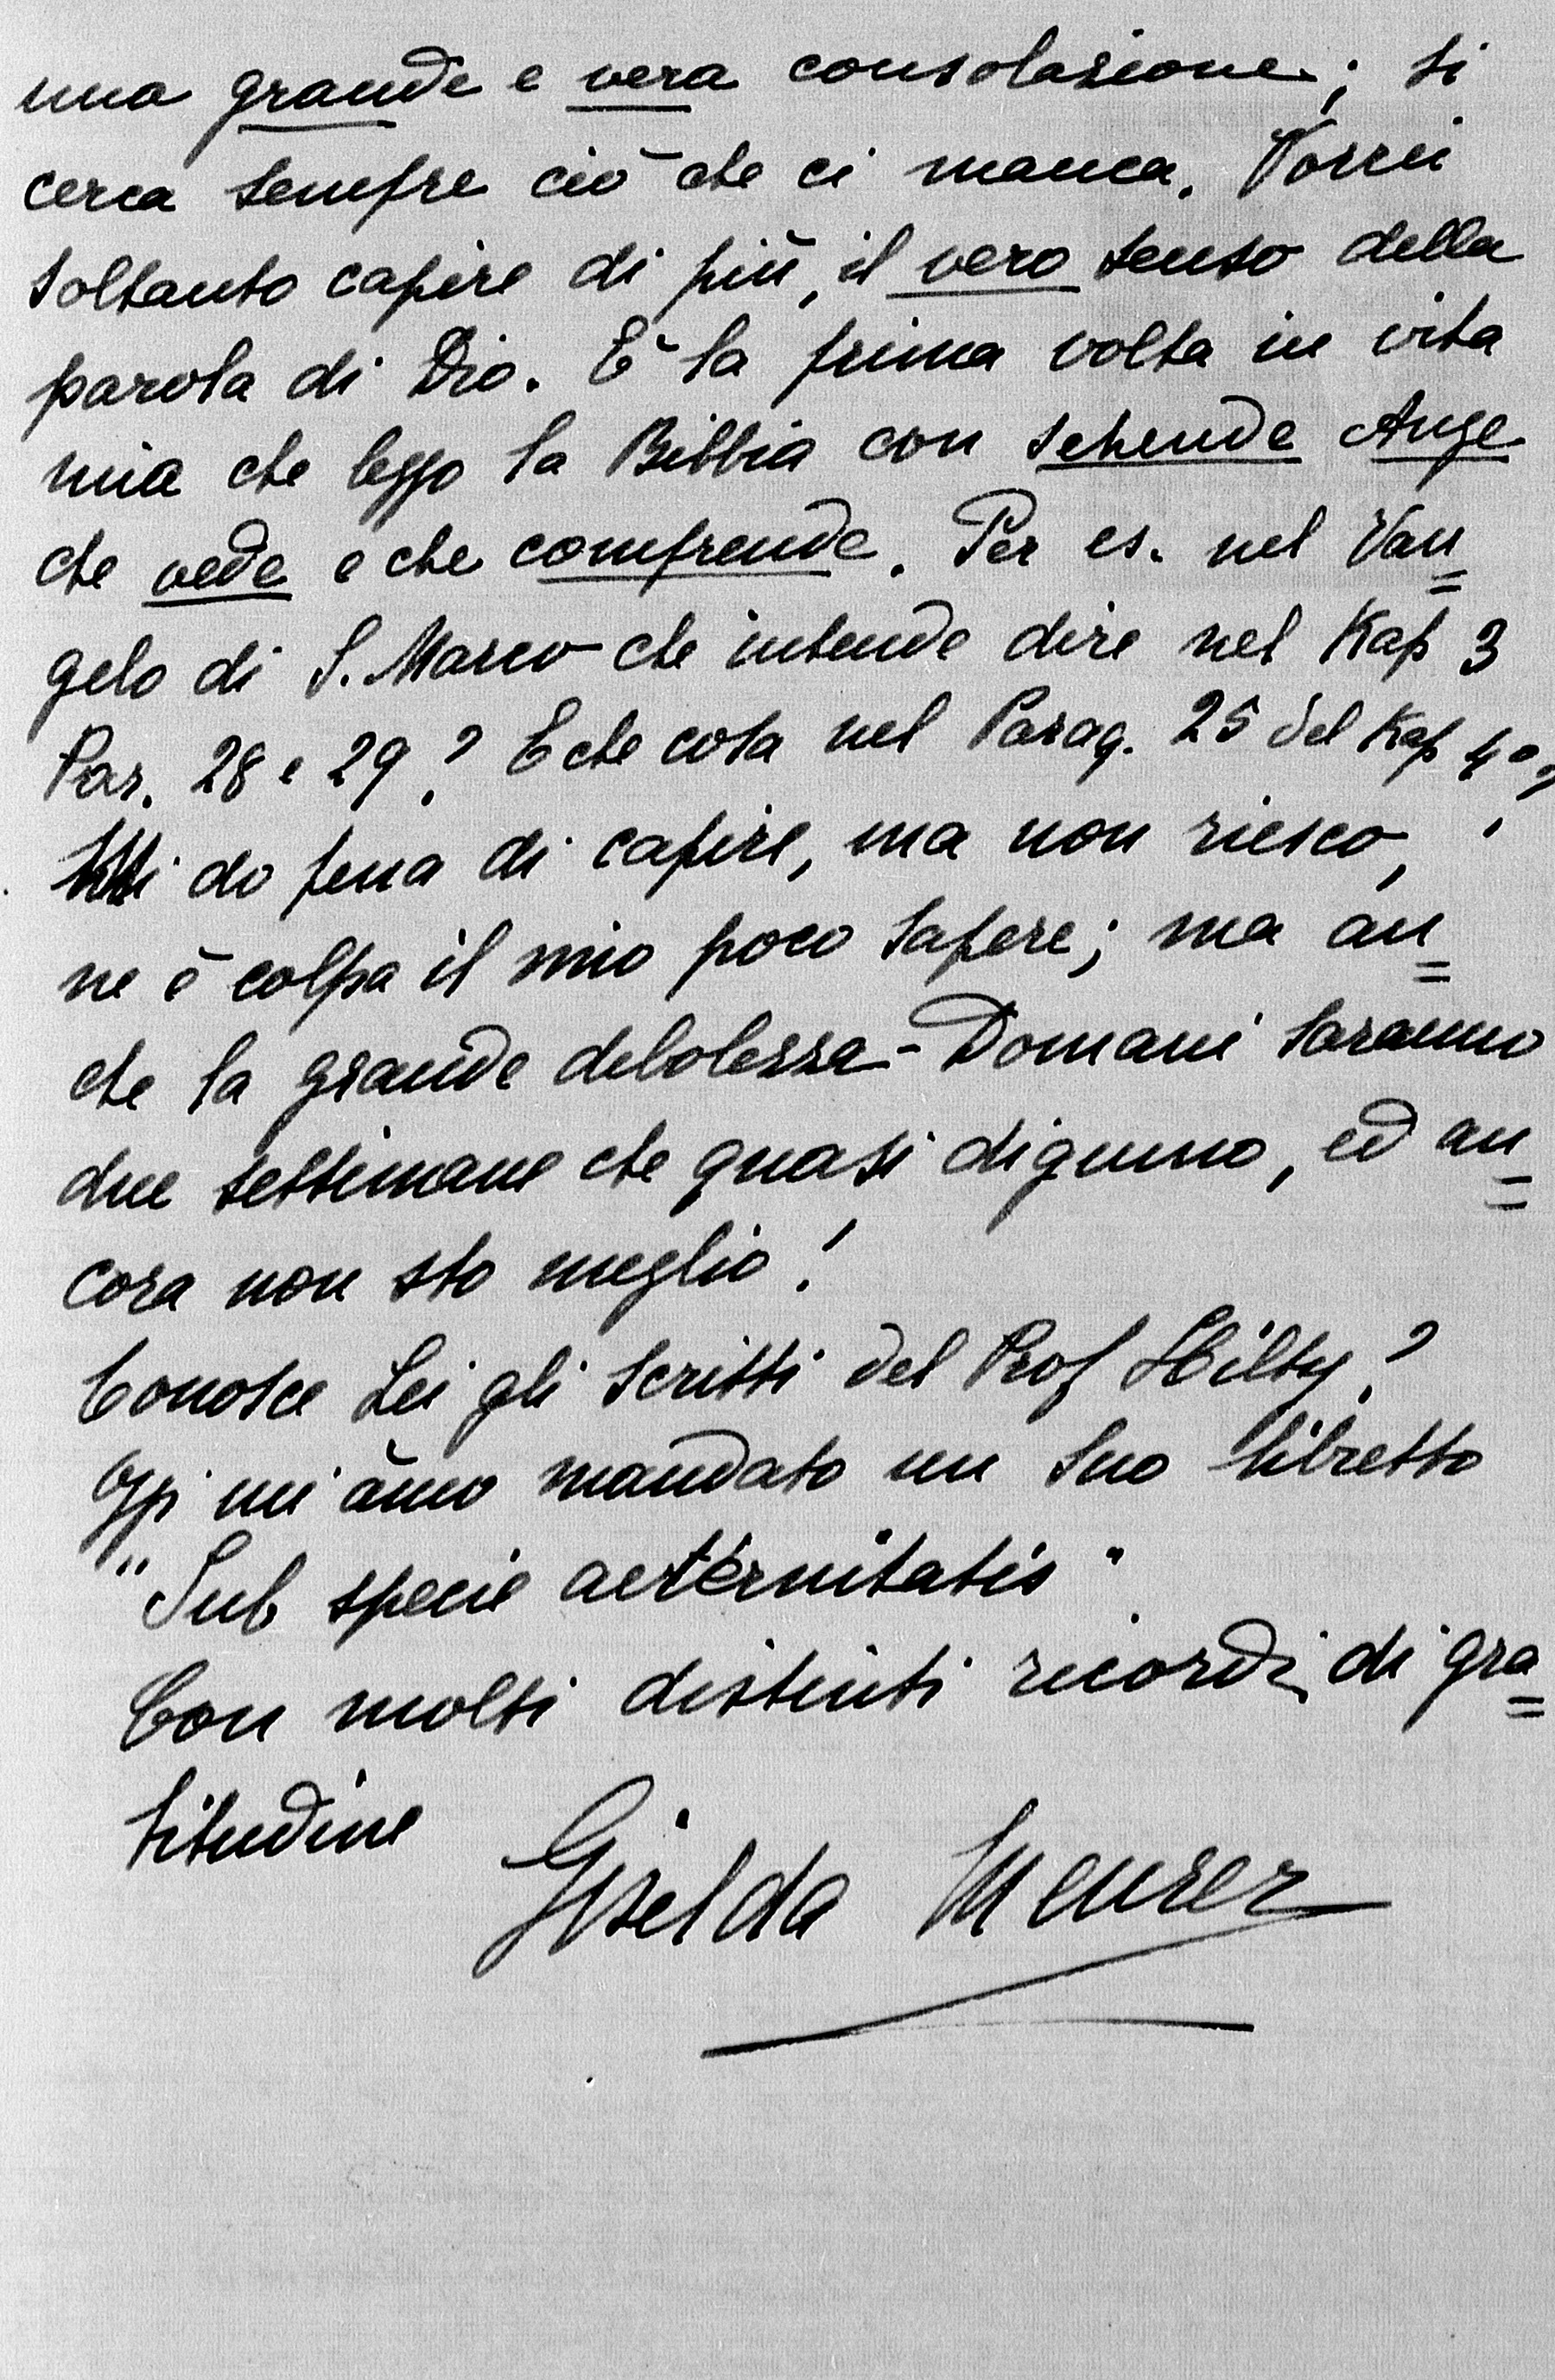 una grande e vera consolazione; si
cerca sempre ciò che ci manca. Vorrei
soltanto capire di più, il vero senso della
parola di Dio. È la prima volta in vita
mia che leggo la Bibbia con sehende Auge
che vede e che comprende. Per es. nel Van=
gelo di S. Marco che intende dire nel Kap 3
Par. 28 e 29? E che cosa nel Parag. 25 del Kap 4º?
Mi do pena di capire, ma non riesco,
ne è colpa il mio poco sapere; ma an=
che la grande debolezza - Domani saranno
due settimane che quasi digiuno, ed an=
cora non sto meglio!
Conosce Lei gli scritti del Prof Hilty?
mi ànno mandato un suo libretto
"Sub specie aeternitatis"
Con molti distinti ricordi di gra=
titudine
Giselda Meurer